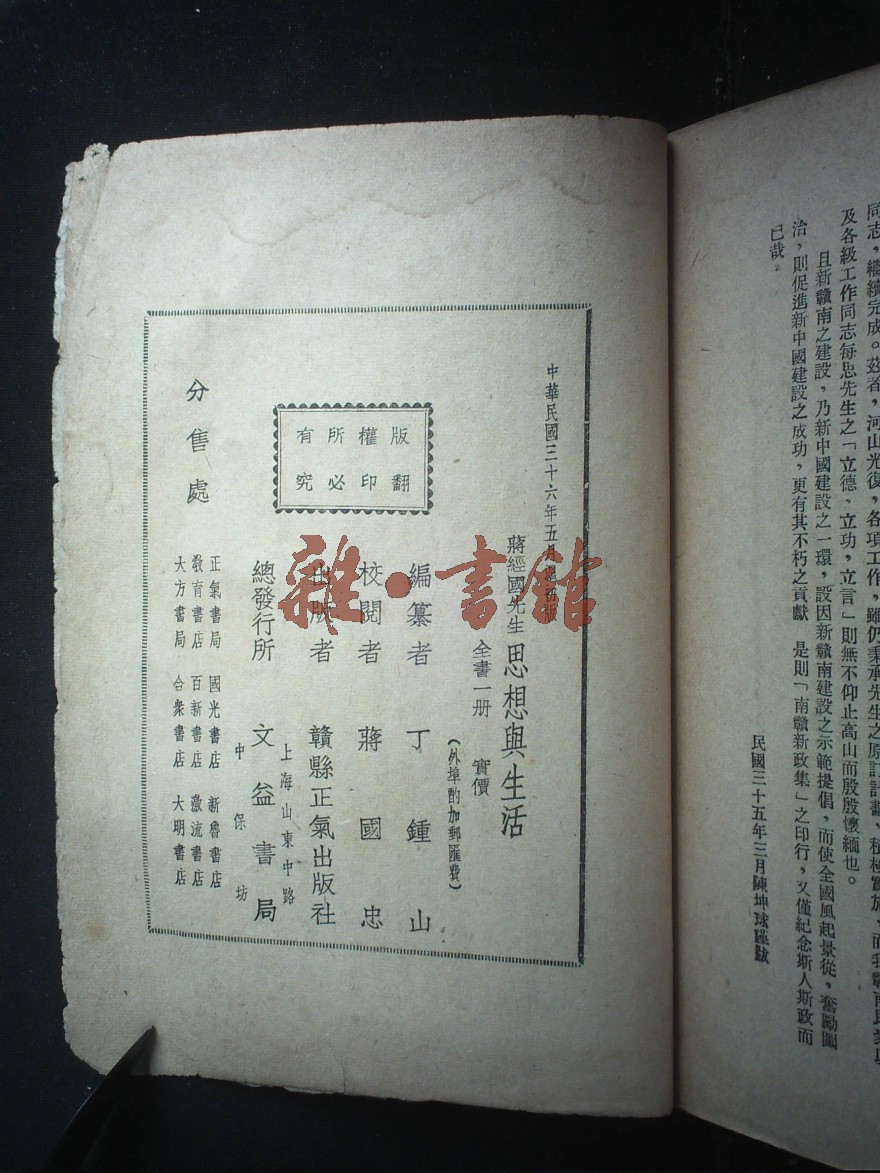 同志，繼續完成。茲者，河山光復，各項工作，雖仍秉承先生之原訂計劃、積極實施、而我贛南民衆與
及各級工作同志每思先生之「立德、立功，立言」則無不仰止高山而殷殷懷緬也。
且新贛南之建設，乃新中國建設之一環，設因新贛南建設之示範提倡，而使全國風起景從，奮勵圖
治，則促進新中國建設之成功，更有其不朽之貢獻 是則「南贛新政集」之印行，又僅紀念斯人斯政而
已哉。
民國三十五年三月陳坤球謹跋
中華民國三十六年五月
版
蔣經國先生 思想與生活
全書一册 實價
（外埠酌加郵匯費）
版權所有
翻印必究
編纂者 丁鍾山
校閱者 蔣國忠
出版者 贛縣正氣出版社
上海山東中路
總發行所 文益書局
中保坊
分售處
正氣書局 國光書店 新魯書店
教育書店 百新書店 激流書店
大方書局 合衆書店 大明書店
雜·書館